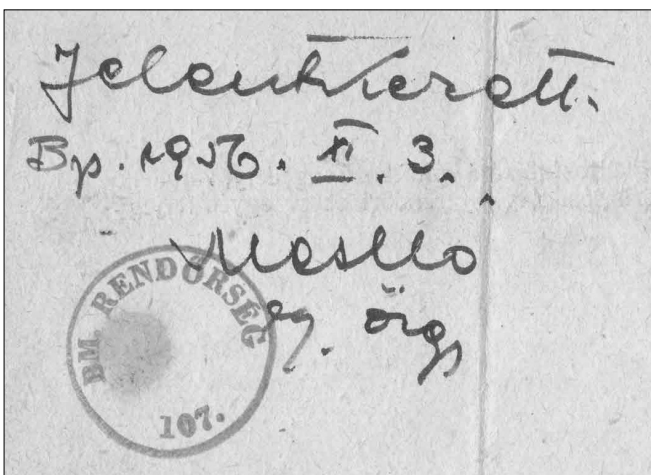 Jelentkezett.
Bp. 1956. XI. 3.
őrgs
BM. RENDŐRSÉG
107.